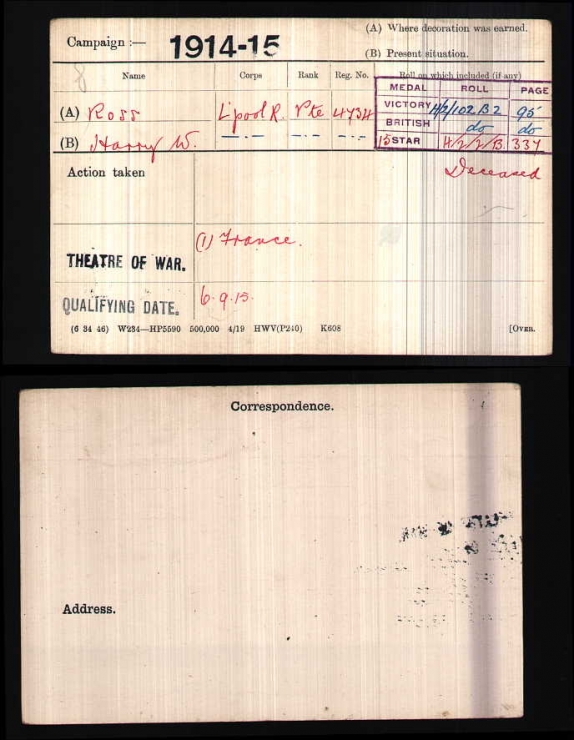 (A) Where decoration was earned.
Campaign :— 1914-15
(B) Present situation.
Name Corps Rank Reg. No. Roll on which included (if any)
MEDAL ROLL PAGE
(A) Ross L'pool R. Pte 4734
VICTORY H/2/102 B2 95
BRITISH do do
(B) Harry W. —·— —·— —·—
15 STAR H/2/2/B 337
Action taken Deceased
THEATRE OF WAR. (1) France.
QUALIFYING DATE. 6.9.15.
(6 34 46) W234—HP5590 500,000 4/19 HWV(P240) K608 [OVER.
Correspondence.
Address.